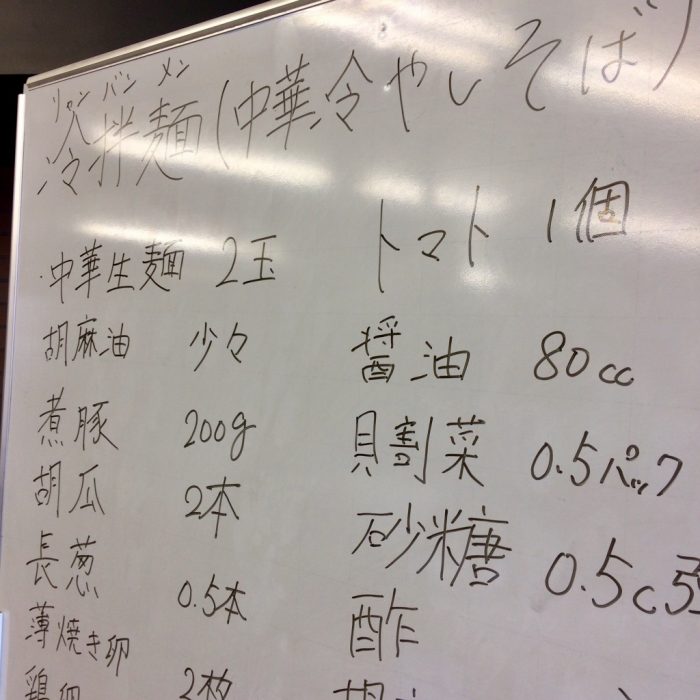 リャン バン メン
冷拌麺(中華冷やしそば)
・中華生麺 2玉
胡麻油 少々
煮豚 200g
胡瓜 2本
長葱 0.5本
薄焼き卵
鶏卵
トマト 1個
醤油 80cc
貝割菜 0.5パック
砂糖 0.5c弱
酢